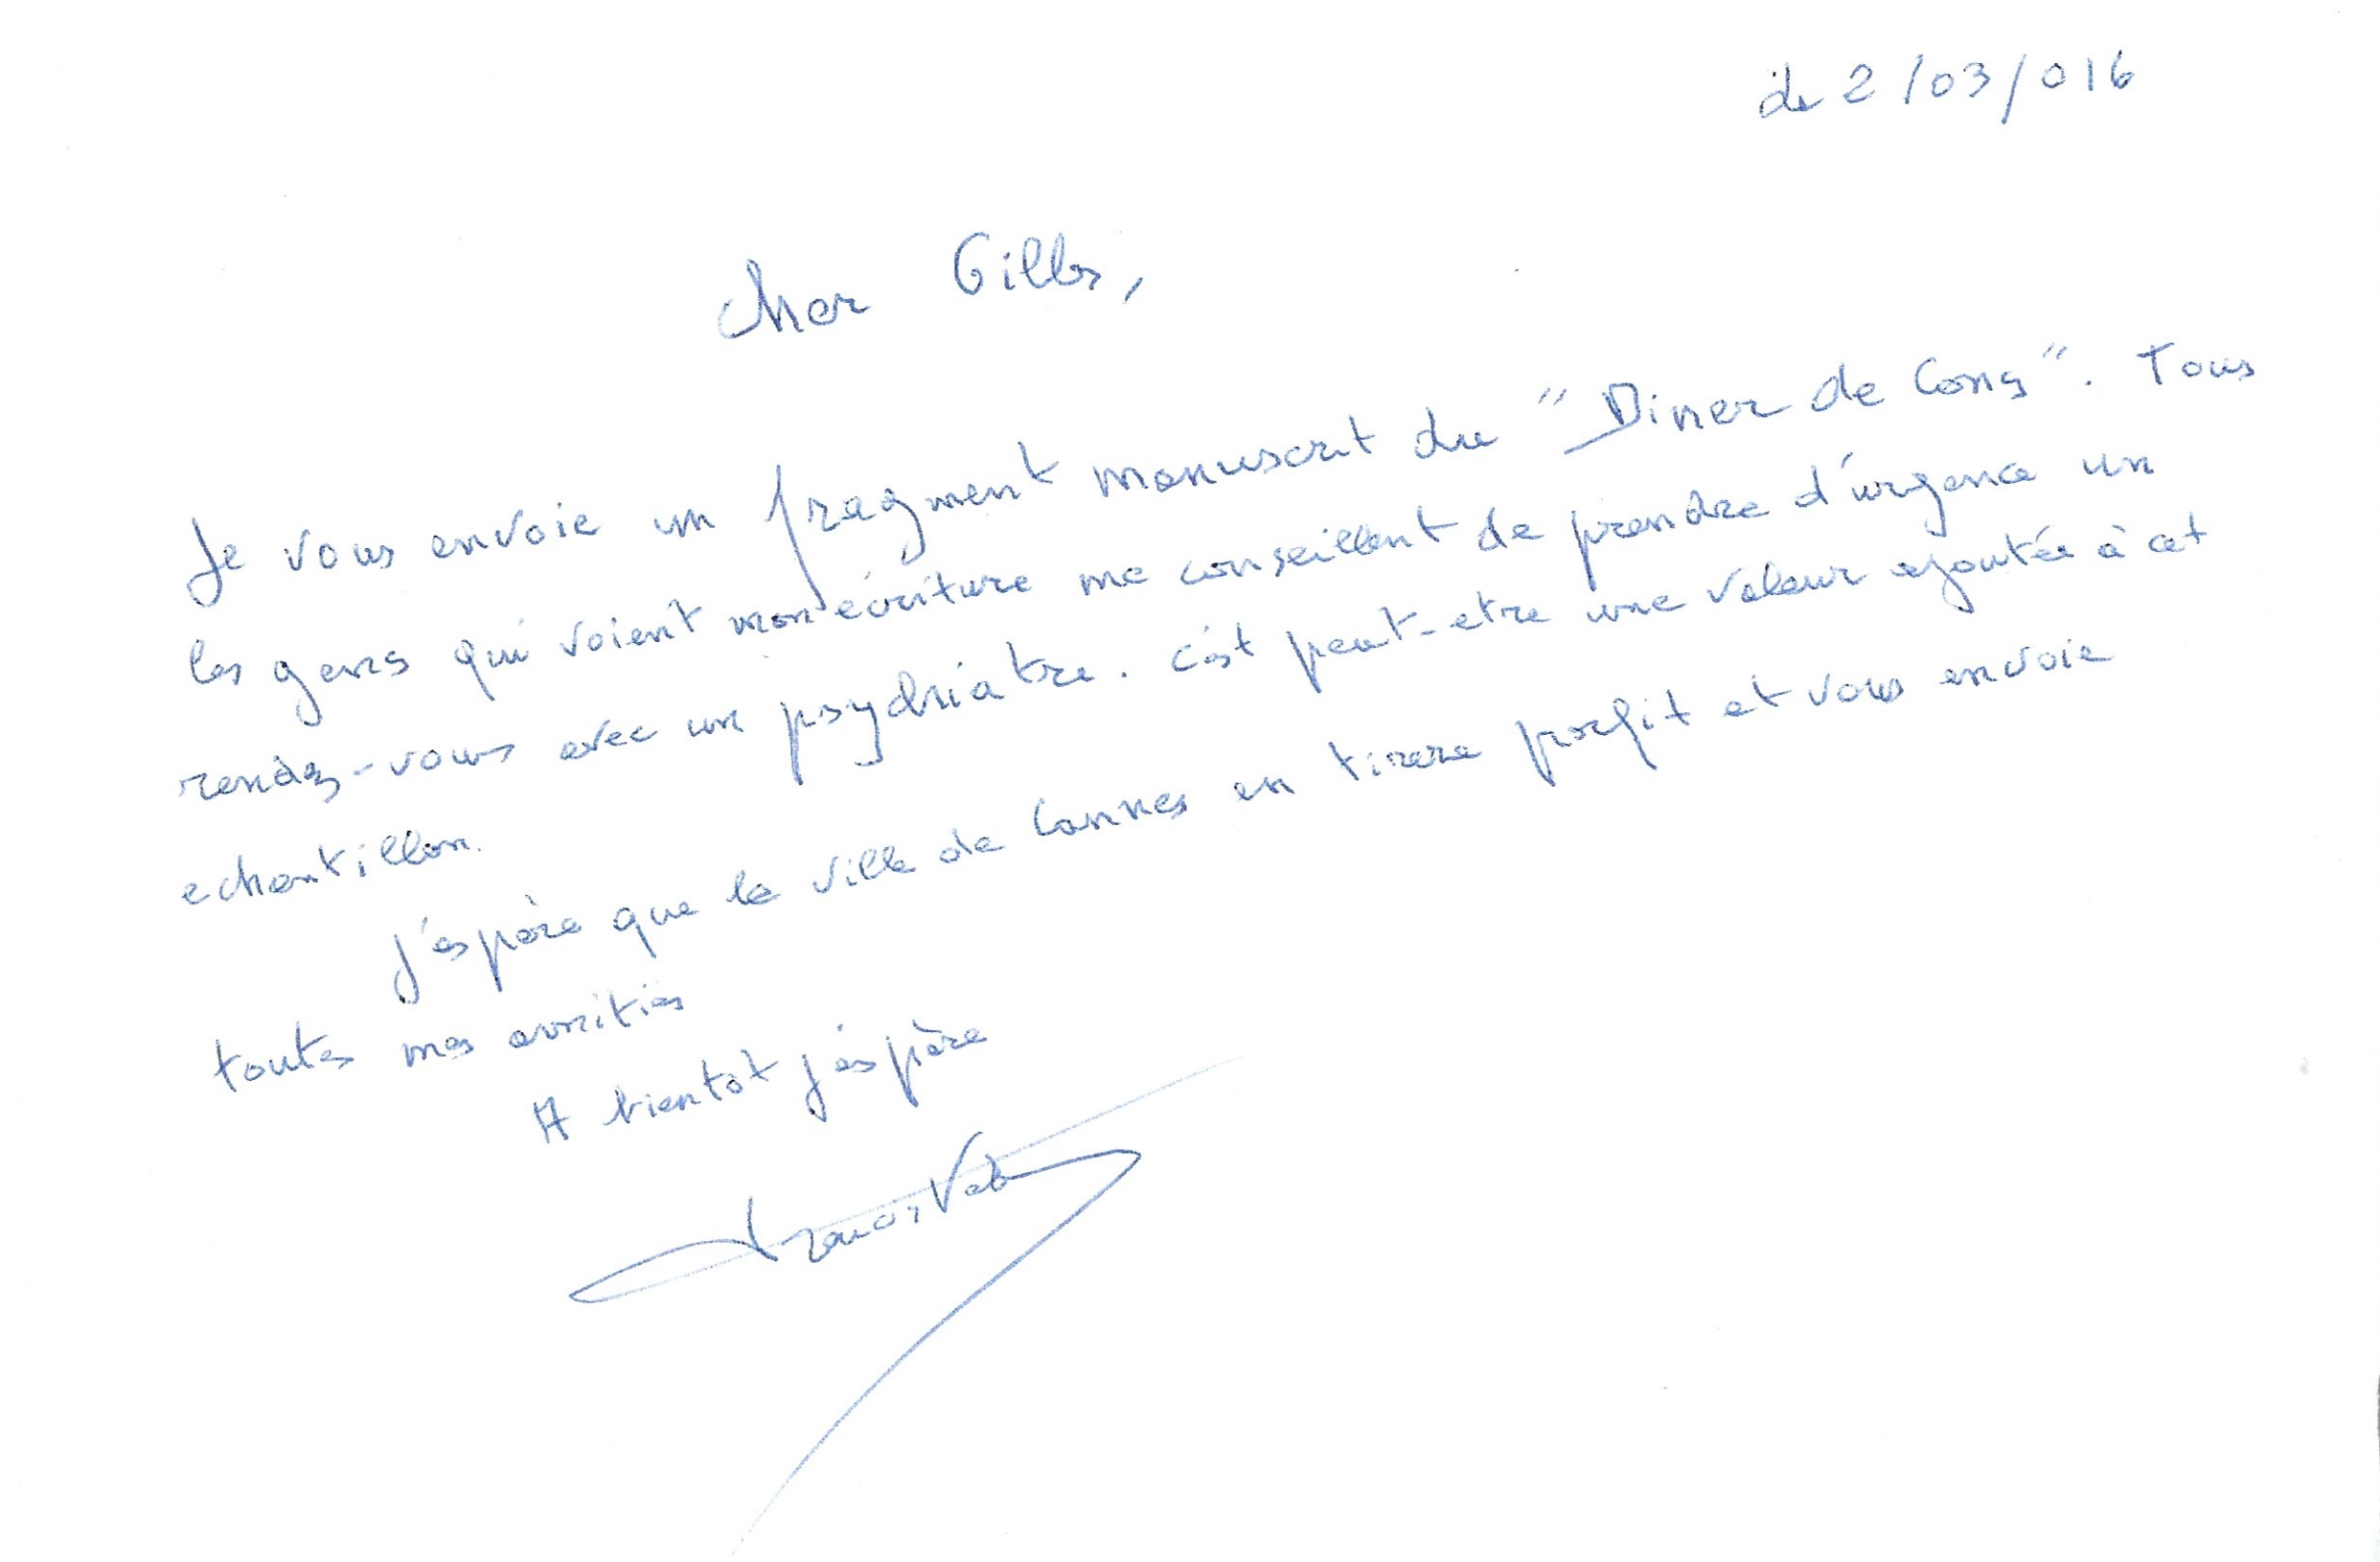 le 2/03/016
Cher Gilles,
Je vous envoie un fragment manuscrit du "Diner de Cons". Tous
les gens qui voient mon écriture me conseillent de prendre d'urgence un
rendez-vous avec un psychiatre. C'est peut-etre une valeur ajoutée à cet
echantillon.
J'espère que la ville de Cannes en tirera profit et vous envoie
toutes mes amitiés
A bientôt j'espère
Francis Veber